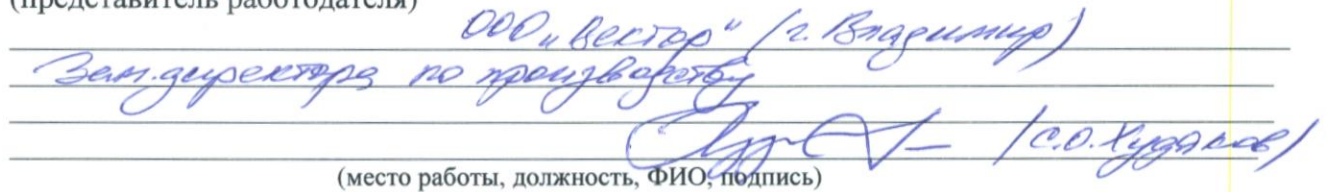 (представитель работодателя)
ООО „Вектор“ (г. Владимир)
Зам. директора по производству
/С.О. Худяков/
(место работы, должность, ФИО, подпись)